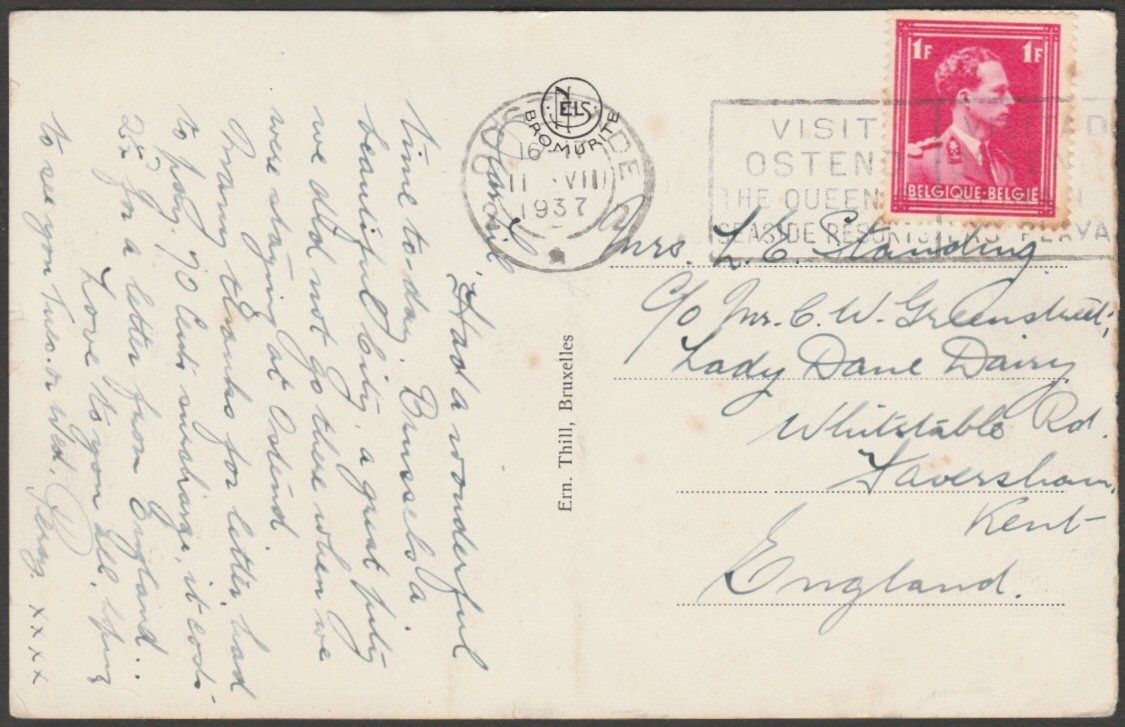 NELS
BROMURITE
OOSTENDE
16-17
11 VIII
1937
VISIT
OSTEND
THE QUEEN
SEASIDE RESORTS
PLAYA
1F 1F
BELGIQUE-BELGIË
'Had a wonderful
time to-day. Brussels a
beautiful City, a great pity
we did not go there when we
were staying at Ostend
Many thanks for letter, had
to pay 70 cents surcharge, it costs
for a letter from England.
Love to you all, hoping
to see you Tues. or Wed.
x x x x
Ern. Thill, Bruxelles
Mrs. L. E. Standing
C/o Mr. C. W. Greenstreet,
Lady Dane Dairy
Whitstable Rd.
Faversham,
Kent
England.